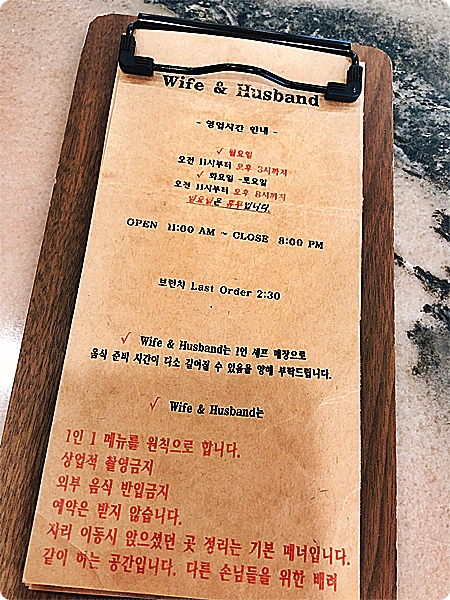 Wife & Husband
- 영업시간 안내 -
✓ 월요일
오전 11시부터 오후 3시까지
✓ 화요일 -토요일
오전 11시부터 오후 8시까지
일요일은 휴무입니다.
OPEN 11:00 AM ~ CLOSE 8:00 PM
브런치 Last Order 2:30
✓ Wife & Husband는 1인 셰프 매장으로
음식 준비 시간이 다소 길어질 수 있음을 양해 부탁드립니다.
✓ Wife & Husband는
1인 1 메뉴를 원칙으로 합니다.
상업적 촬영금지
외부 음식 반입금지
예약은 받지 않습니다.
자리 이동시 앉으셨던 곳 정리는 기본 매너입니다.
같이 하는 공간입니다. 다른 손님들을 위한 배려